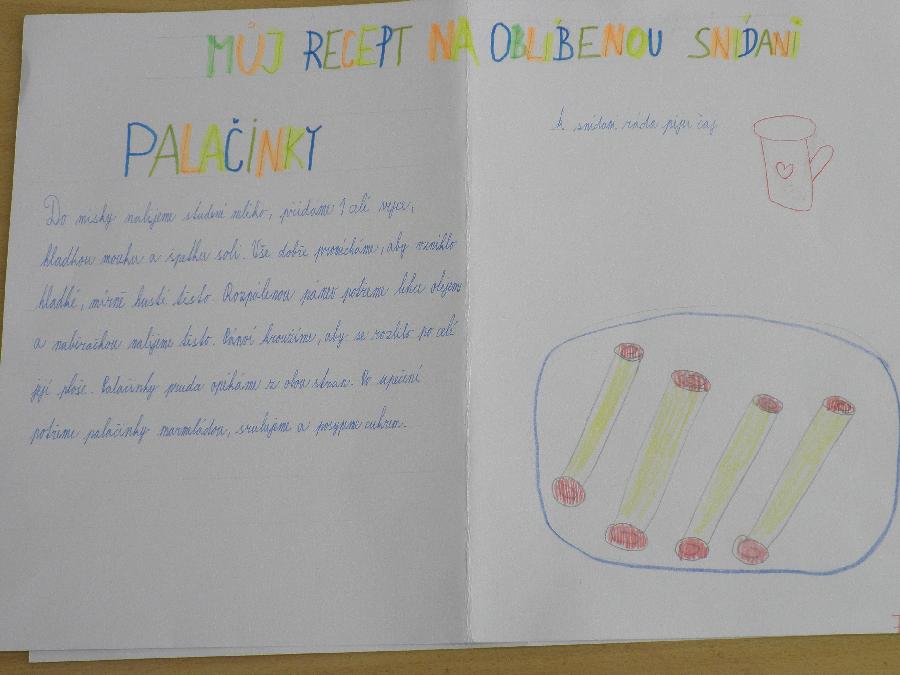 MŮJ RECEPT NA OBLÍBENOU SNÍDANI
PALAČINKY
Do misky nalijeme studené mléko, přidáme 1 celé vejce,
hladkou mouku a špetku soli. Vše dobře promícháme, aby vzniklo
hladké, mírně husté těsto. Rozpálenou pánev potřeme lehce olejem
a naběračkou nalijeme těsto. Pánví kroužíme, aby se rozlilo po celé
její ploše. Palačinky prudce opékáme z obou stran. Po upečení
potřeme palačinky marmeládou, srolujeme a posypeme cukrem.
K snídani ráda piju čaj